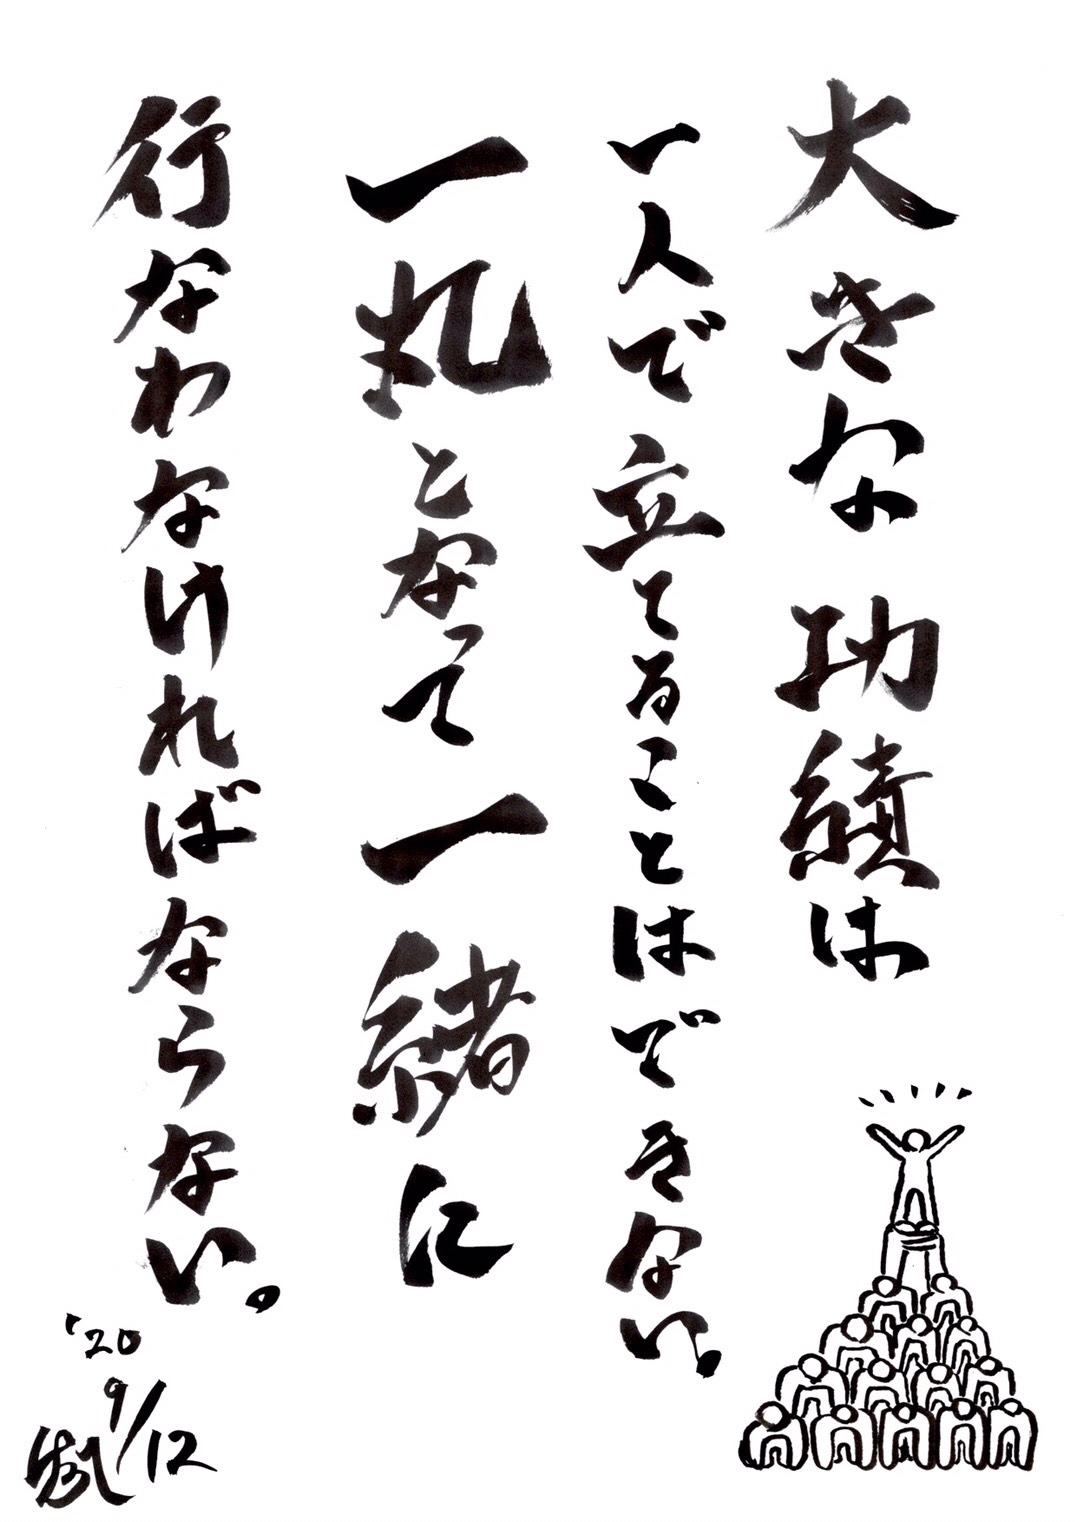 大きな功績は
一人で立てることはできない。
一丸となって一緒に
行なわなければならない。
'20
9/12